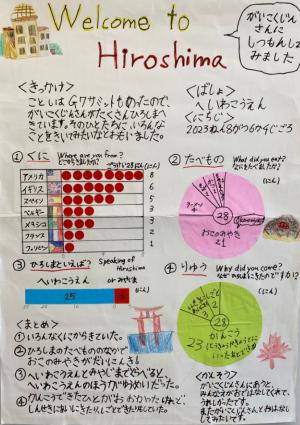 Welcome to
Hiroshima
がいこくじん
さんに
しつもんして
みました
〈きっかけ〉
ことしはG7サミットもあったので、
がいこくじんさんがたくさんひろしまへ
きています。そのひとたちに、いろんな
ことをきいてみたいなとおもいました。
〈ばしょ〉
へいわこうえん
〈にちじ〉
2023ねん8がつ
①くに
Where are you from?
(にん)
アメリカ 8
イギリス 6
スペイン 5
ベルギー 3
メキシコ 3
フランス 2
フィリピン 1
②たべもの
What did you eat?
(にん)
28
おこのみやき
21
③ひろしまといえば?
Speaking of
Hiroshima
へいわこうえん or みやじま
(にん)
25 3
④りゆう
Why did you come?
(にん)
28
かんこう
23
〈まとめ〉
①いろんなくにからきていた。
②ひろしまのたべもののなかで
おこのみやきがだいにんき!
③へいわこうえんとみやじまでくらべると、
へいわこうえんのほうがゆうめいだった。
〈かんそう〉
がいこくじんさんにあうと、
みんなえがおではなしてくれて、
うれしかったです。
またがいこくじんさんとおはなし
してみたいです。